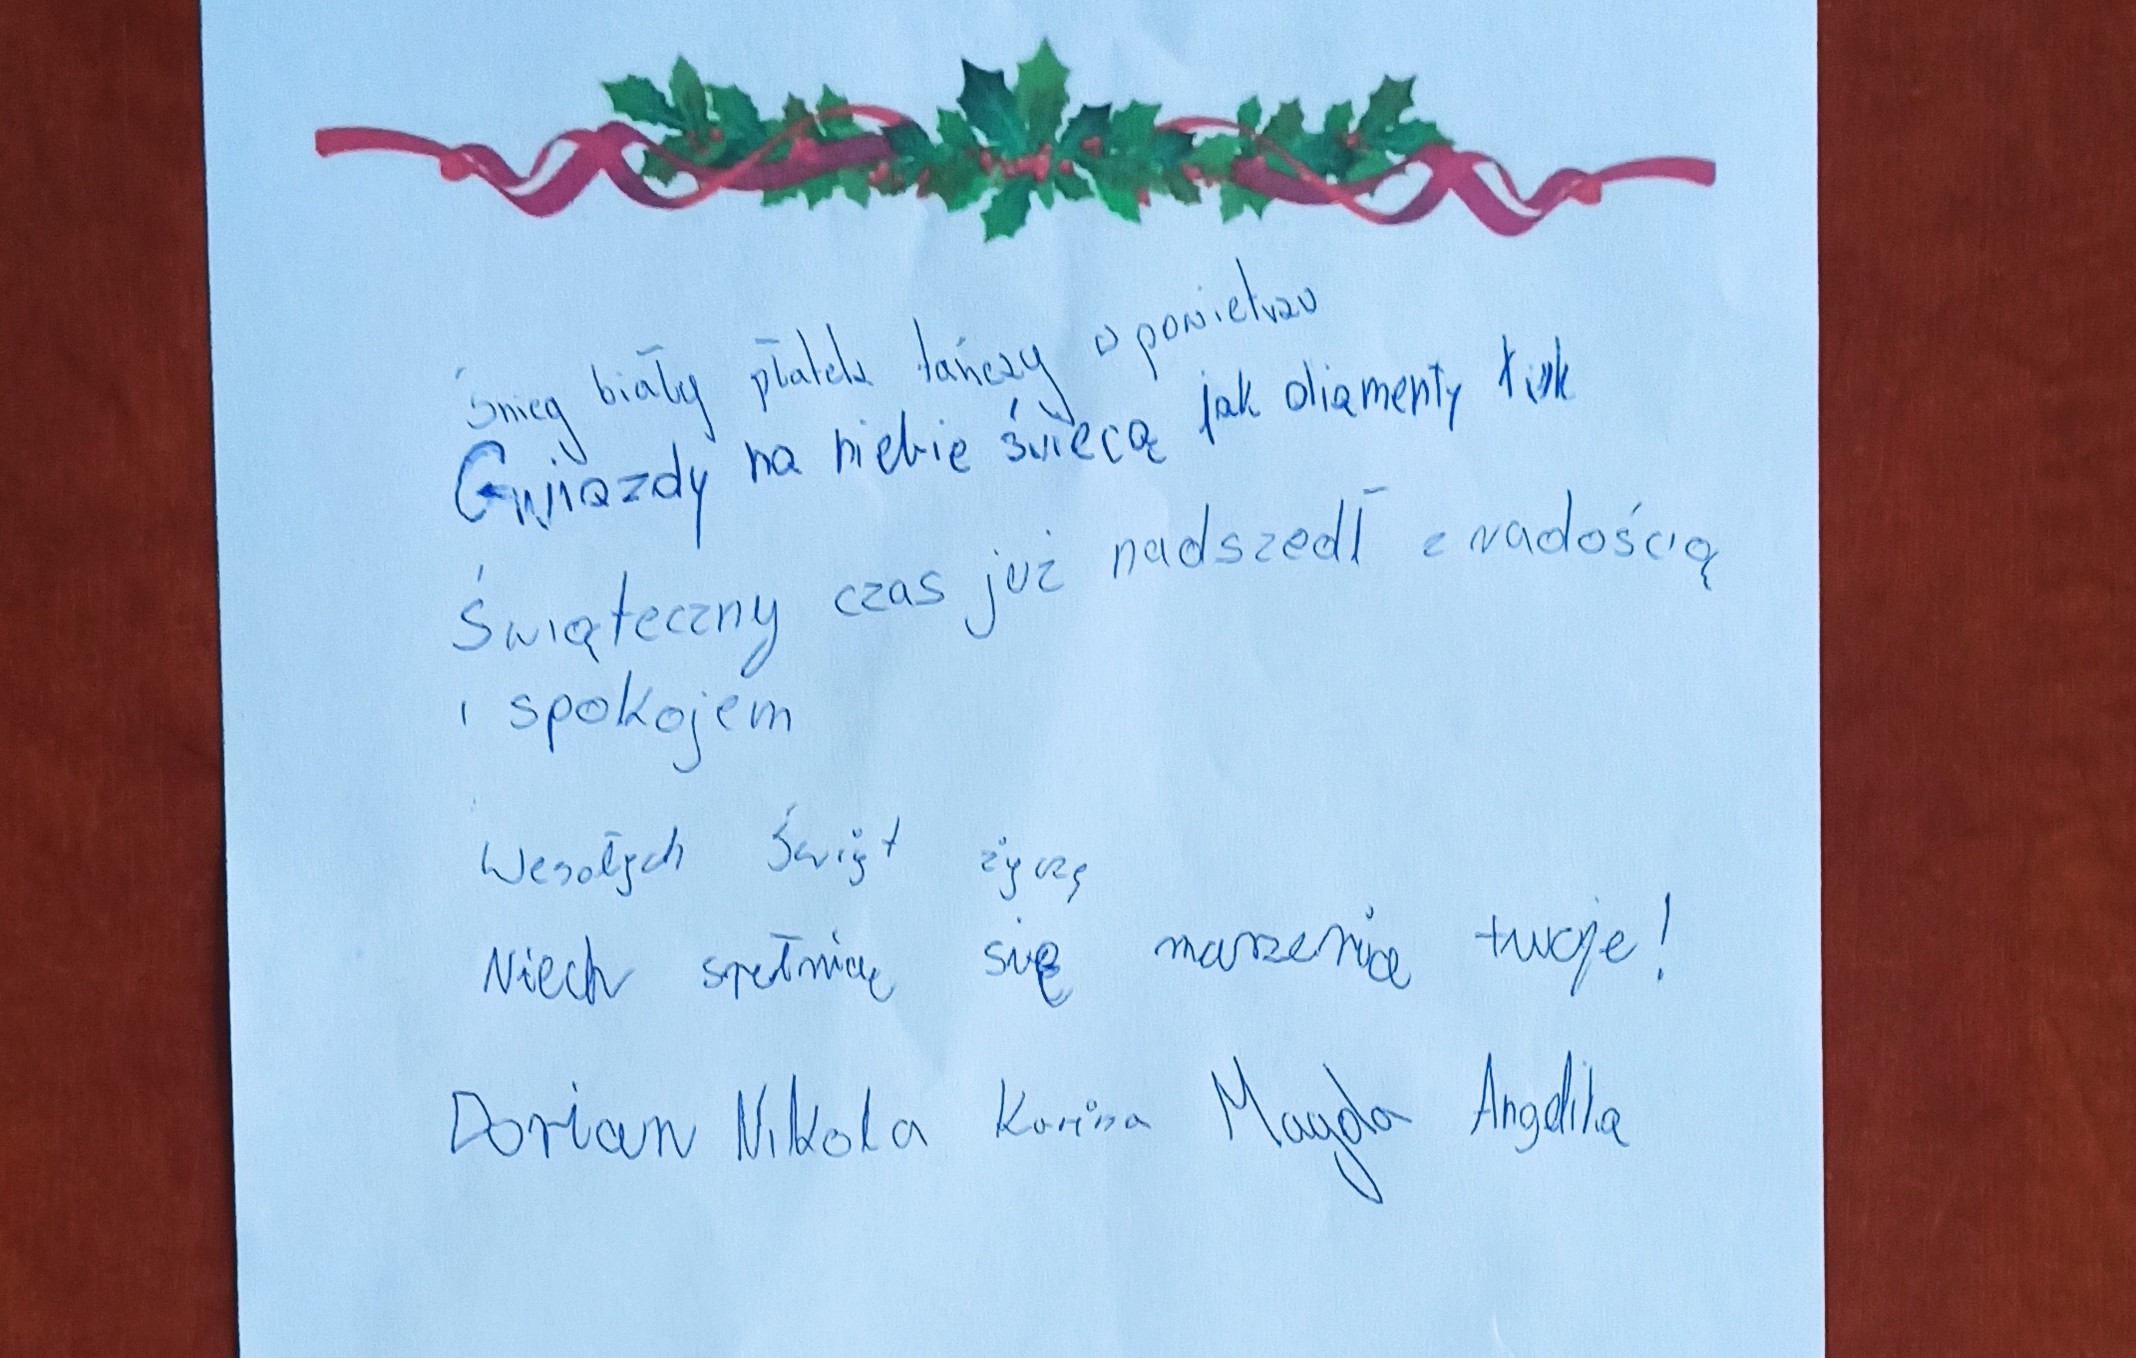 Śnieg biały płatek tańczy w powietrzu
Gwiazdy na niebie świecą jak diamenty
Świąteczny czas już nadszedł z radością
i spokojem
Wesołych Świąt życzę
Niech spełnią się marzenia twoje!
Dorian Nikola Karina Magda Angelika